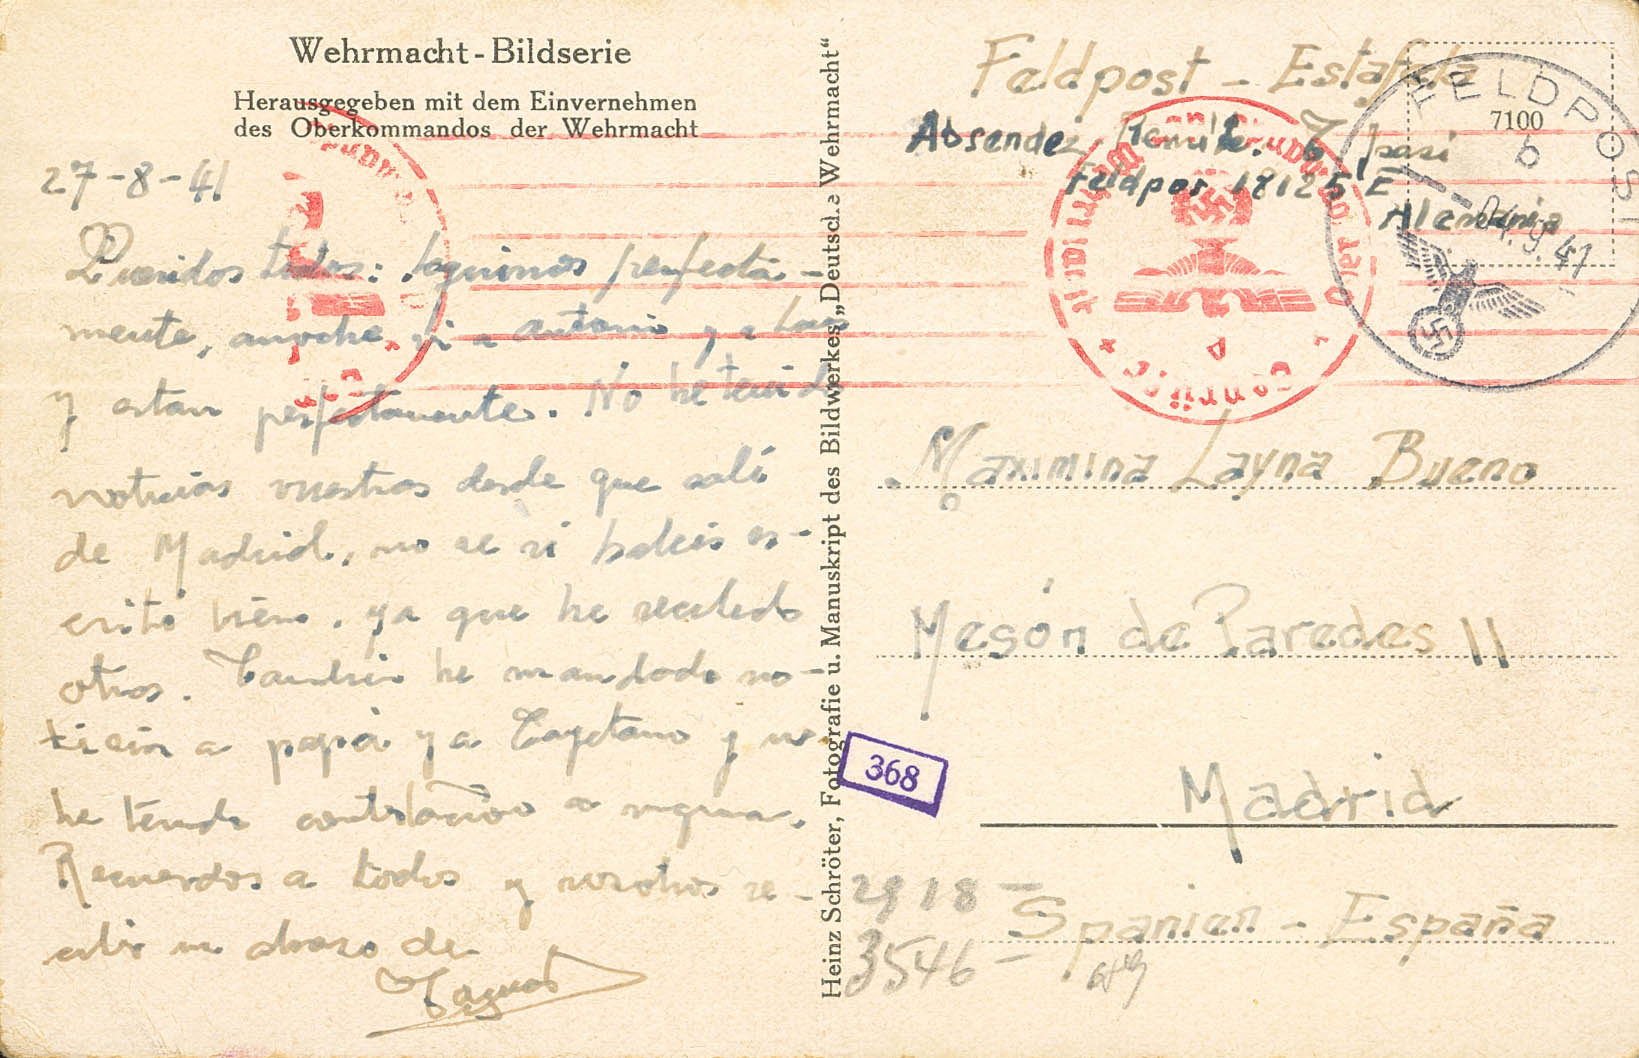 Wehrmacht-Bildserie
Herausgegeben mit dem Einvernehmen
des Oberkommandos der Wehrmacht
27-8-41
Queridos todos: Seguimos perfecta-
mente, anoche vi a Antonio y a
y estan perfectamente. No he tenido
noticias vuestras desde que salí
de Madrid, no se si habeis es-
crito bien, ya que he recibido
otros. Tambien he mandado no-
ticias a papá y a Cayetano y no
he tenido contestación a ninguna.
Recuerdos a todos y vosotros re-
cibir un abrazo de
Heinz Schröter, Fotografie u. Manuskript des Bildwerkes „Deutsche Wehrmacht“
Feldpost - Estafeta
Absender
Feldpos 18125 E
Alemania
FELDPOST
7100
b
04.9.41
Oberkommando der Wehrmacht
Geprüft
Maximina Layna Bueno
Mesón de Paredes 11
Madrid
Spanien - España
368
2918 -
3546 -